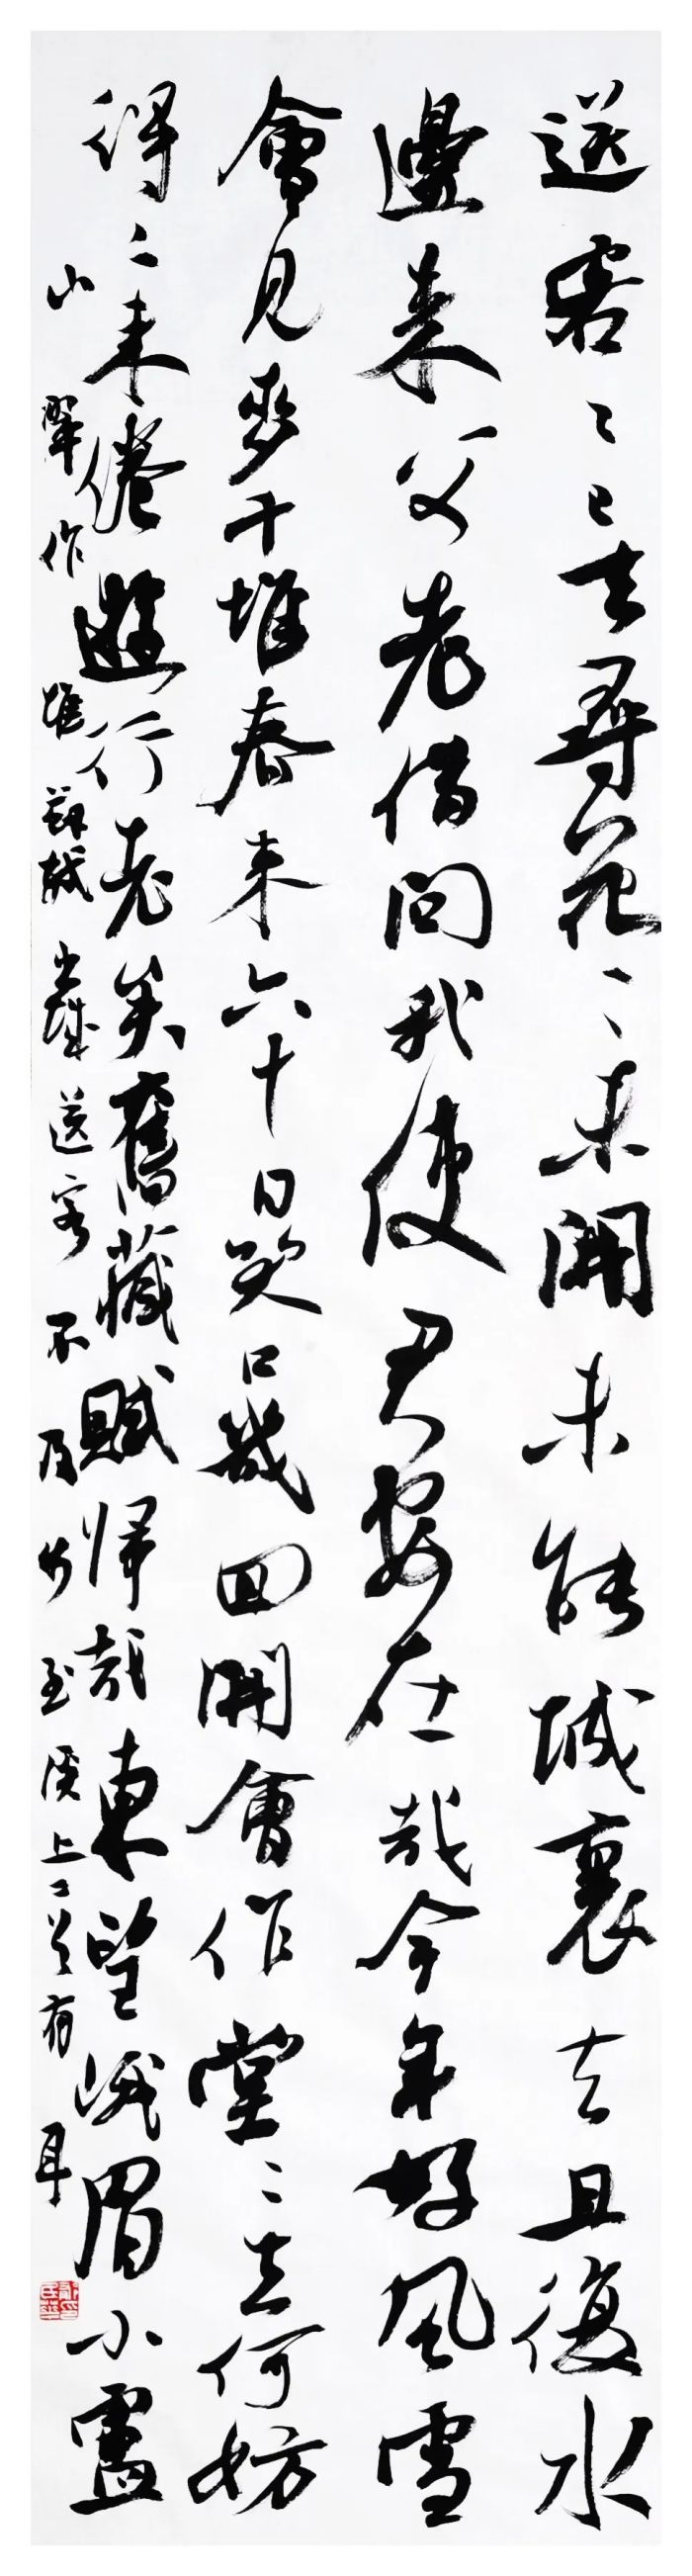 送客〻已去尋花〻未開未能城裏去且復水
邊來父老借問我使君安在哉今年好風雪
會見麥千堆春來六十日笑口幾回開會作堂〻去何妨
得〻來倦遊行老矣舊藏賦歸哉東望峨眉小盧
山翠作堆蘇軾出城送客不及步至溪上二首有耳